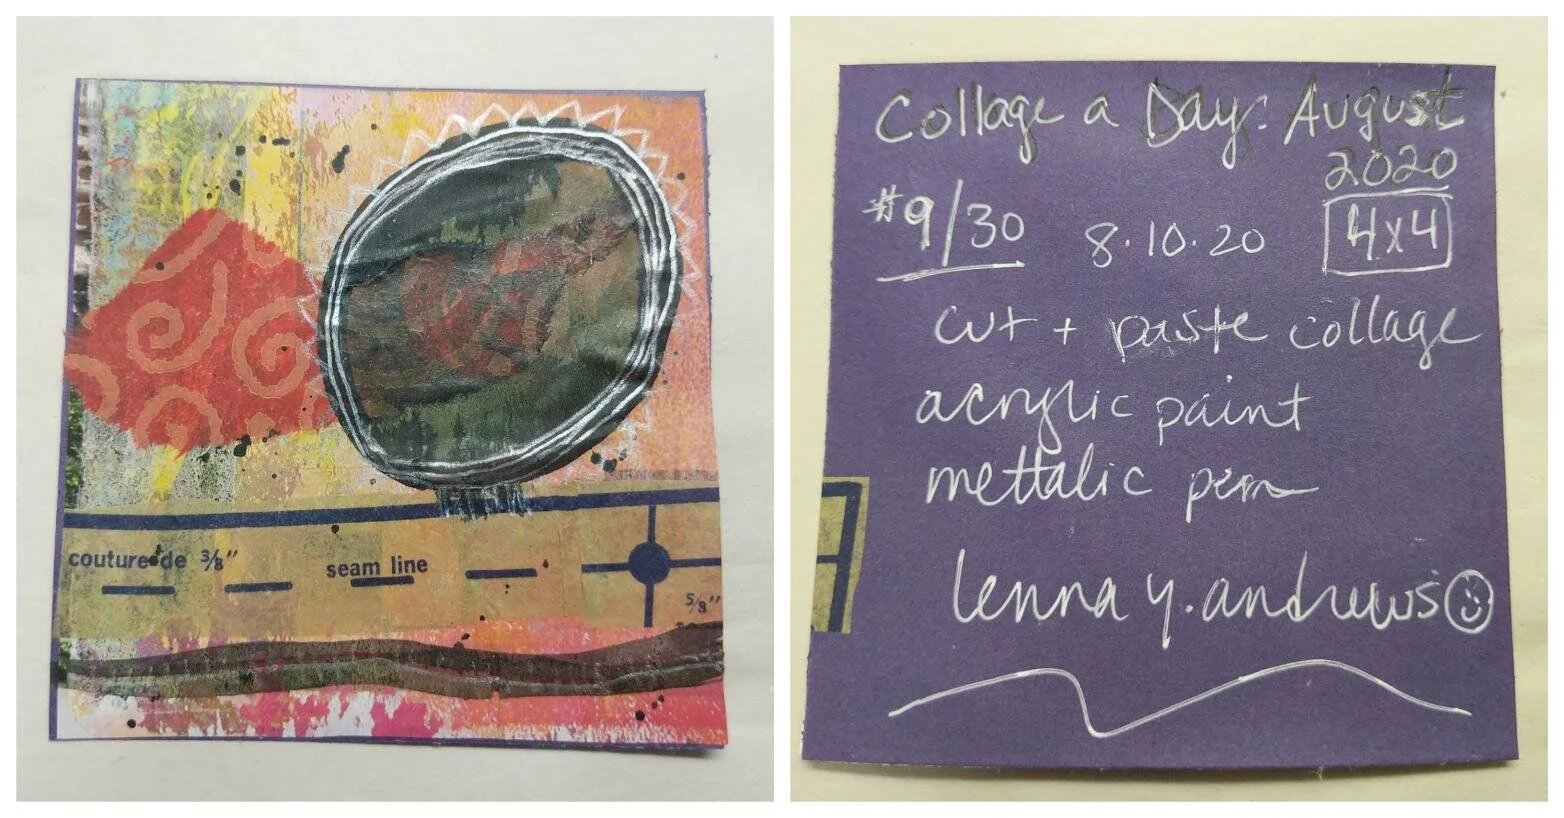 couture de 3/8"
seam line
5/8"
Collage a Day: August
2020
#9/30 8.10.20 4x4
cut + paste collage
acrylic paint
mettalic pen
lenna y. andrews